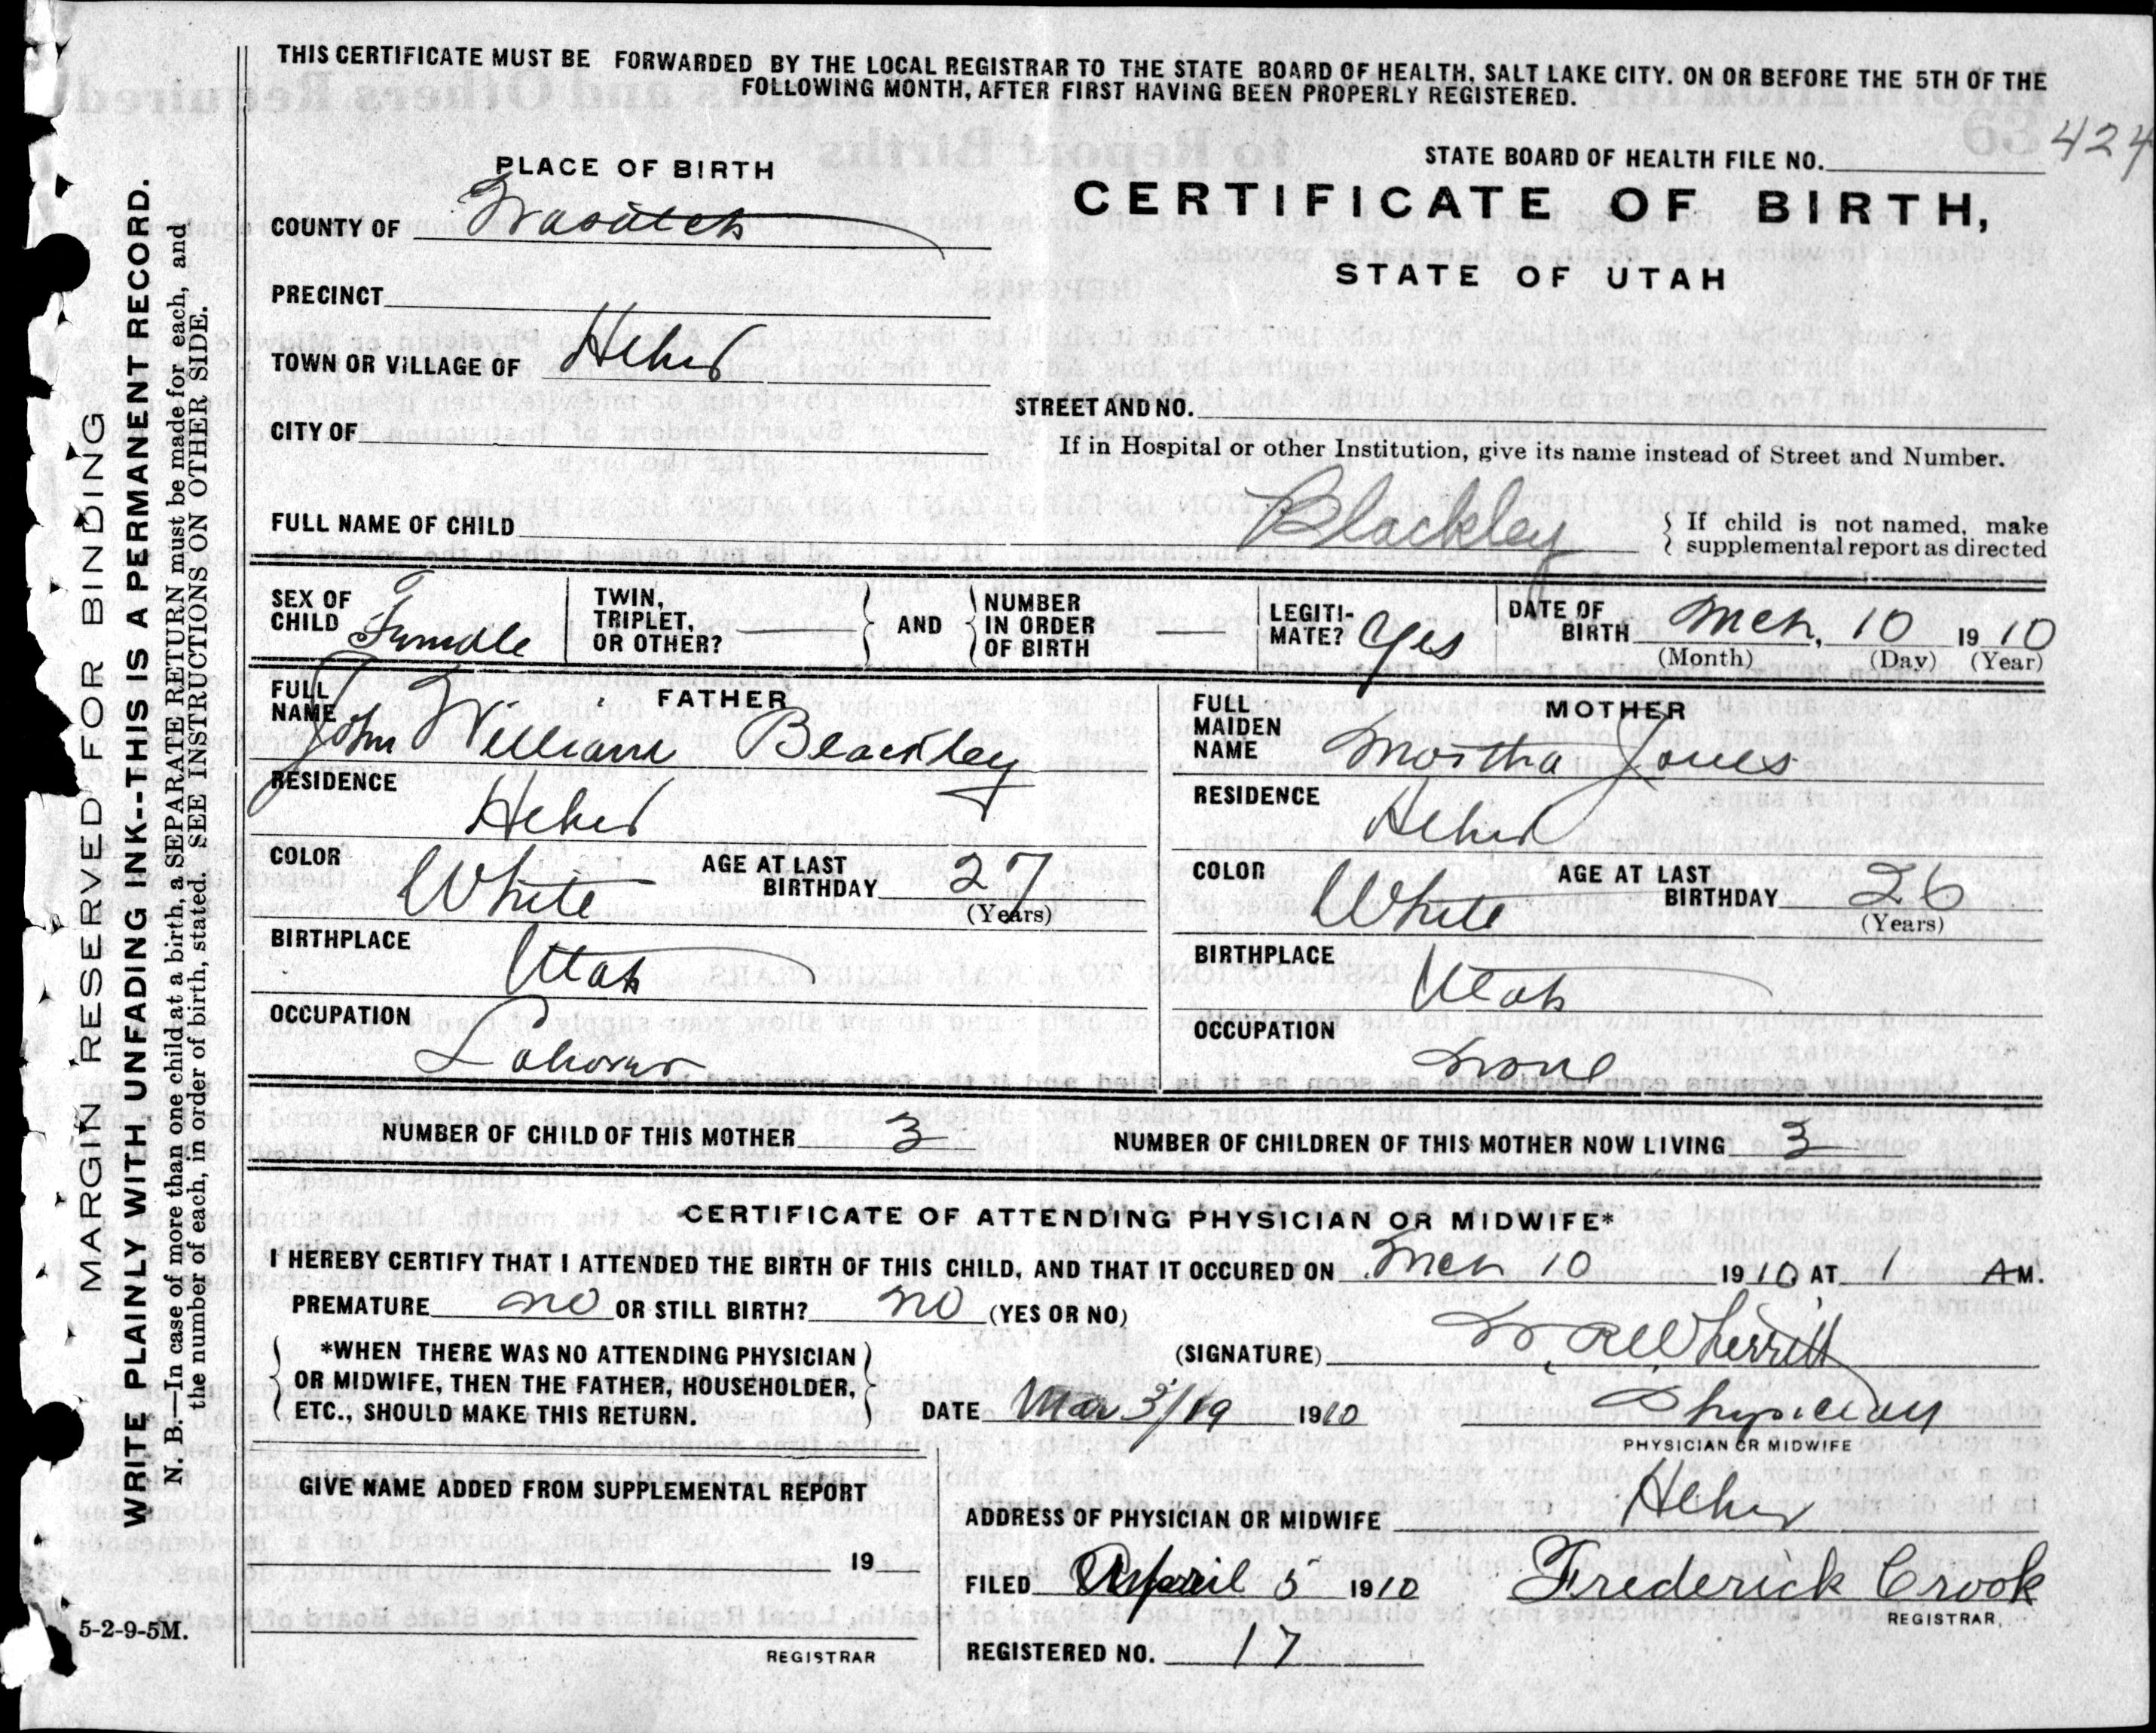 THIS CERTIFICATE MUST BE FORWARDED BY THE LOCAL REGISTRAR TO THE STATE BOARD OF HEALTH, SALT LAKE CITY. ON OR BEFORE THE 5TH OF THE
FOLLOWING MONTH, AFTER FIRST HAVING BEEN PROPERLY REGISTERED.
424
PLACE OF BIRTH
STATE BOARD OF HEALTH FILE NO.
COUNTY OF Wasatch
CERTIFICATE OF BIRTH,
STATE OF UTAH
PRECINCT
TOWN OR VILLAGE OF Heber
STREET AND NO.
CITY OF
If in Hospital or other Institution, give its name instead of Street and Number.
FULL NAME OF CHILD Blackley
If child is not named, make
supplemental report as directed
SEX OF CHILD Female
TWIN, TRIPLET, OR OTHER? —
AND
NUMBER IN ORDER OF BIRTH —
LEGITI-MATE? Yes
DATE OF BIRTH Mch, 10 1910
(Month) (Day) (Year)
FATHER
FULL NAME John William Blackley
RESIDENCE
Heber
COLOR White AGE AT LAST BIRTHDAY 27
(Years)
BIRTHPLACE
Utah
OCCUPATION
Laborer
MOTHER
FULL MAIDEN NAME Martha Jones
RESIDENCE
Heber
COLOR White AGE AT LAST BIRTHDAY 26
(Years)
BIRTHPLACE
Utah
OCCUPATION
None
NUMBER OF CHILD OF THIS MOTHER 3 NUMBER OF CHILDREN OF THIS MOTHER NOW LIVING 3
CERTIFICATE OF ATTENDING PHYSICIAN OR MIDWIFE*
I HEREBY CERTIFY THAT I ATTENDED THE BIRTH OF THIS CHILD, AND THAT IT OCCURED ON Mch 10 1910 AT 1 A M.
PREMATURE no OR STILL BIRTH? no (YES OR NO)
*WHEN THERE WAS NO ATTENDING PHYSICIAN
OR MIDWIFE, THEN THE FATHER, HOUSEHOLDER,
ETC., SHOULD MAKE THIS RETURN.
(SIGNATURE) Wherritt
DATE Mar 3/19 1910
Physician
PHYSICIAN OR MIDWIFE
GIVE NAME ADDED FROM SUPPLEMENTAL REPORT
19
REGISTRAR
ADDRESS OF PHYSICIAN OR MIDWIFE Heber
FILED April 5 1910 Frederick Crook
REGISTRAR,
REGISTERED NO. 17
5-2-9-5M.
MARGIN RESERVED FOR BINDING
WRITE PLAINLY WITH UNFADING INK--THIS IS A PERMANENT RECORD.
N. B.—In case of more than one child at a birth, a SEPARATE RETURN must be made for each, and
the number of each, in order of birth, stated. SEE INSTRUCTIONS ON OTHER SIDE.